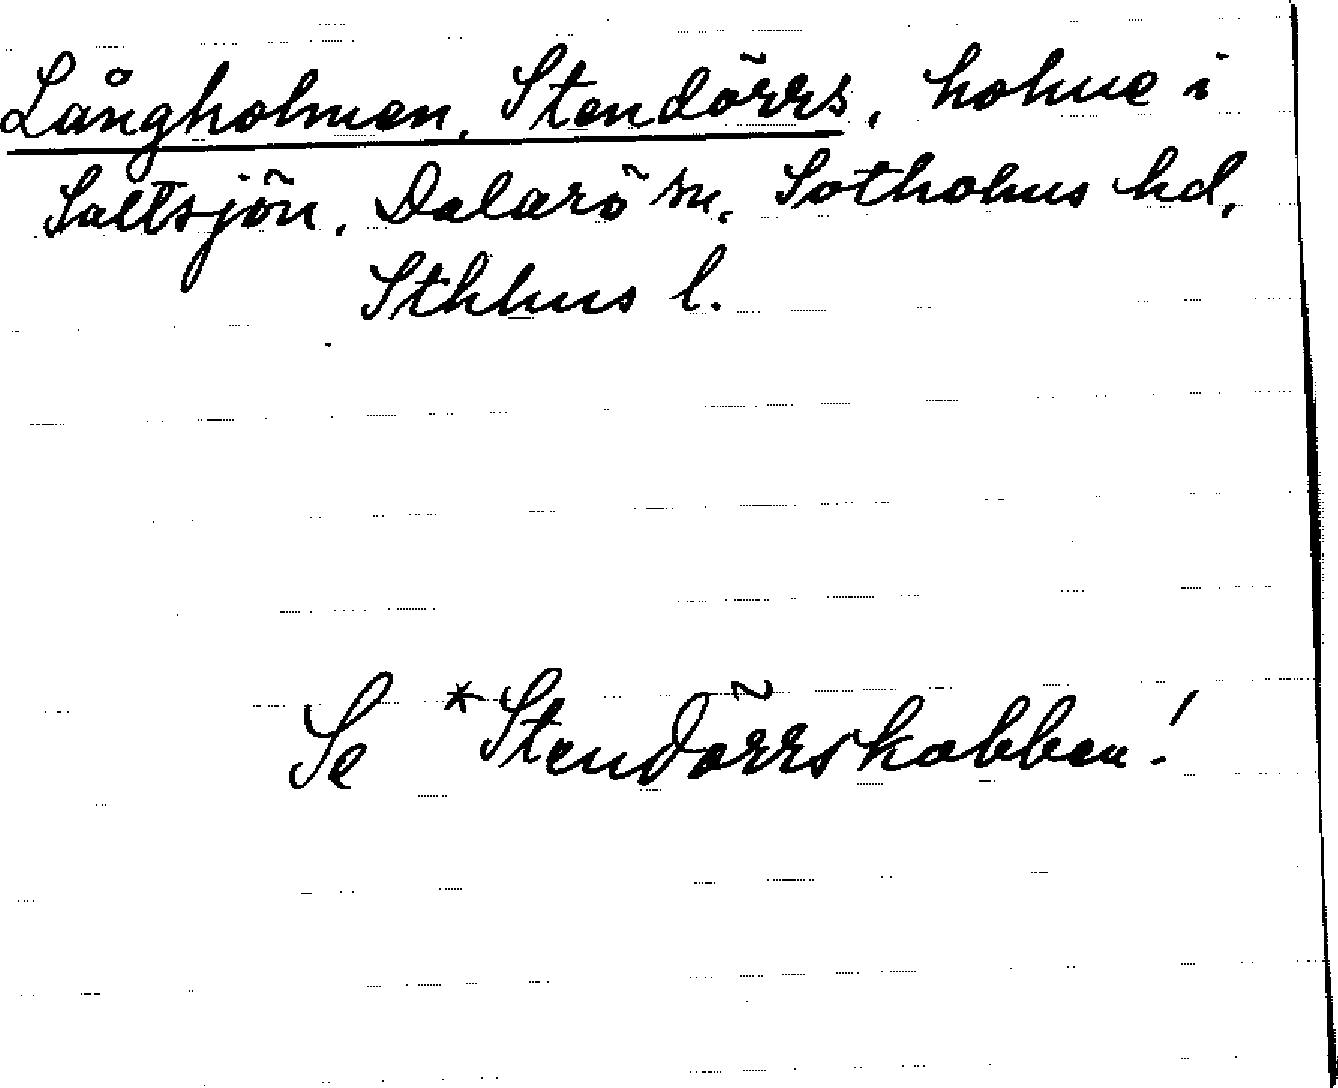 Långholmen, Stendörrs, holme i
Saltsjön, Dalarö sn, Sotholms hd,
Sthlms l.
Se *Stendörrskobben!